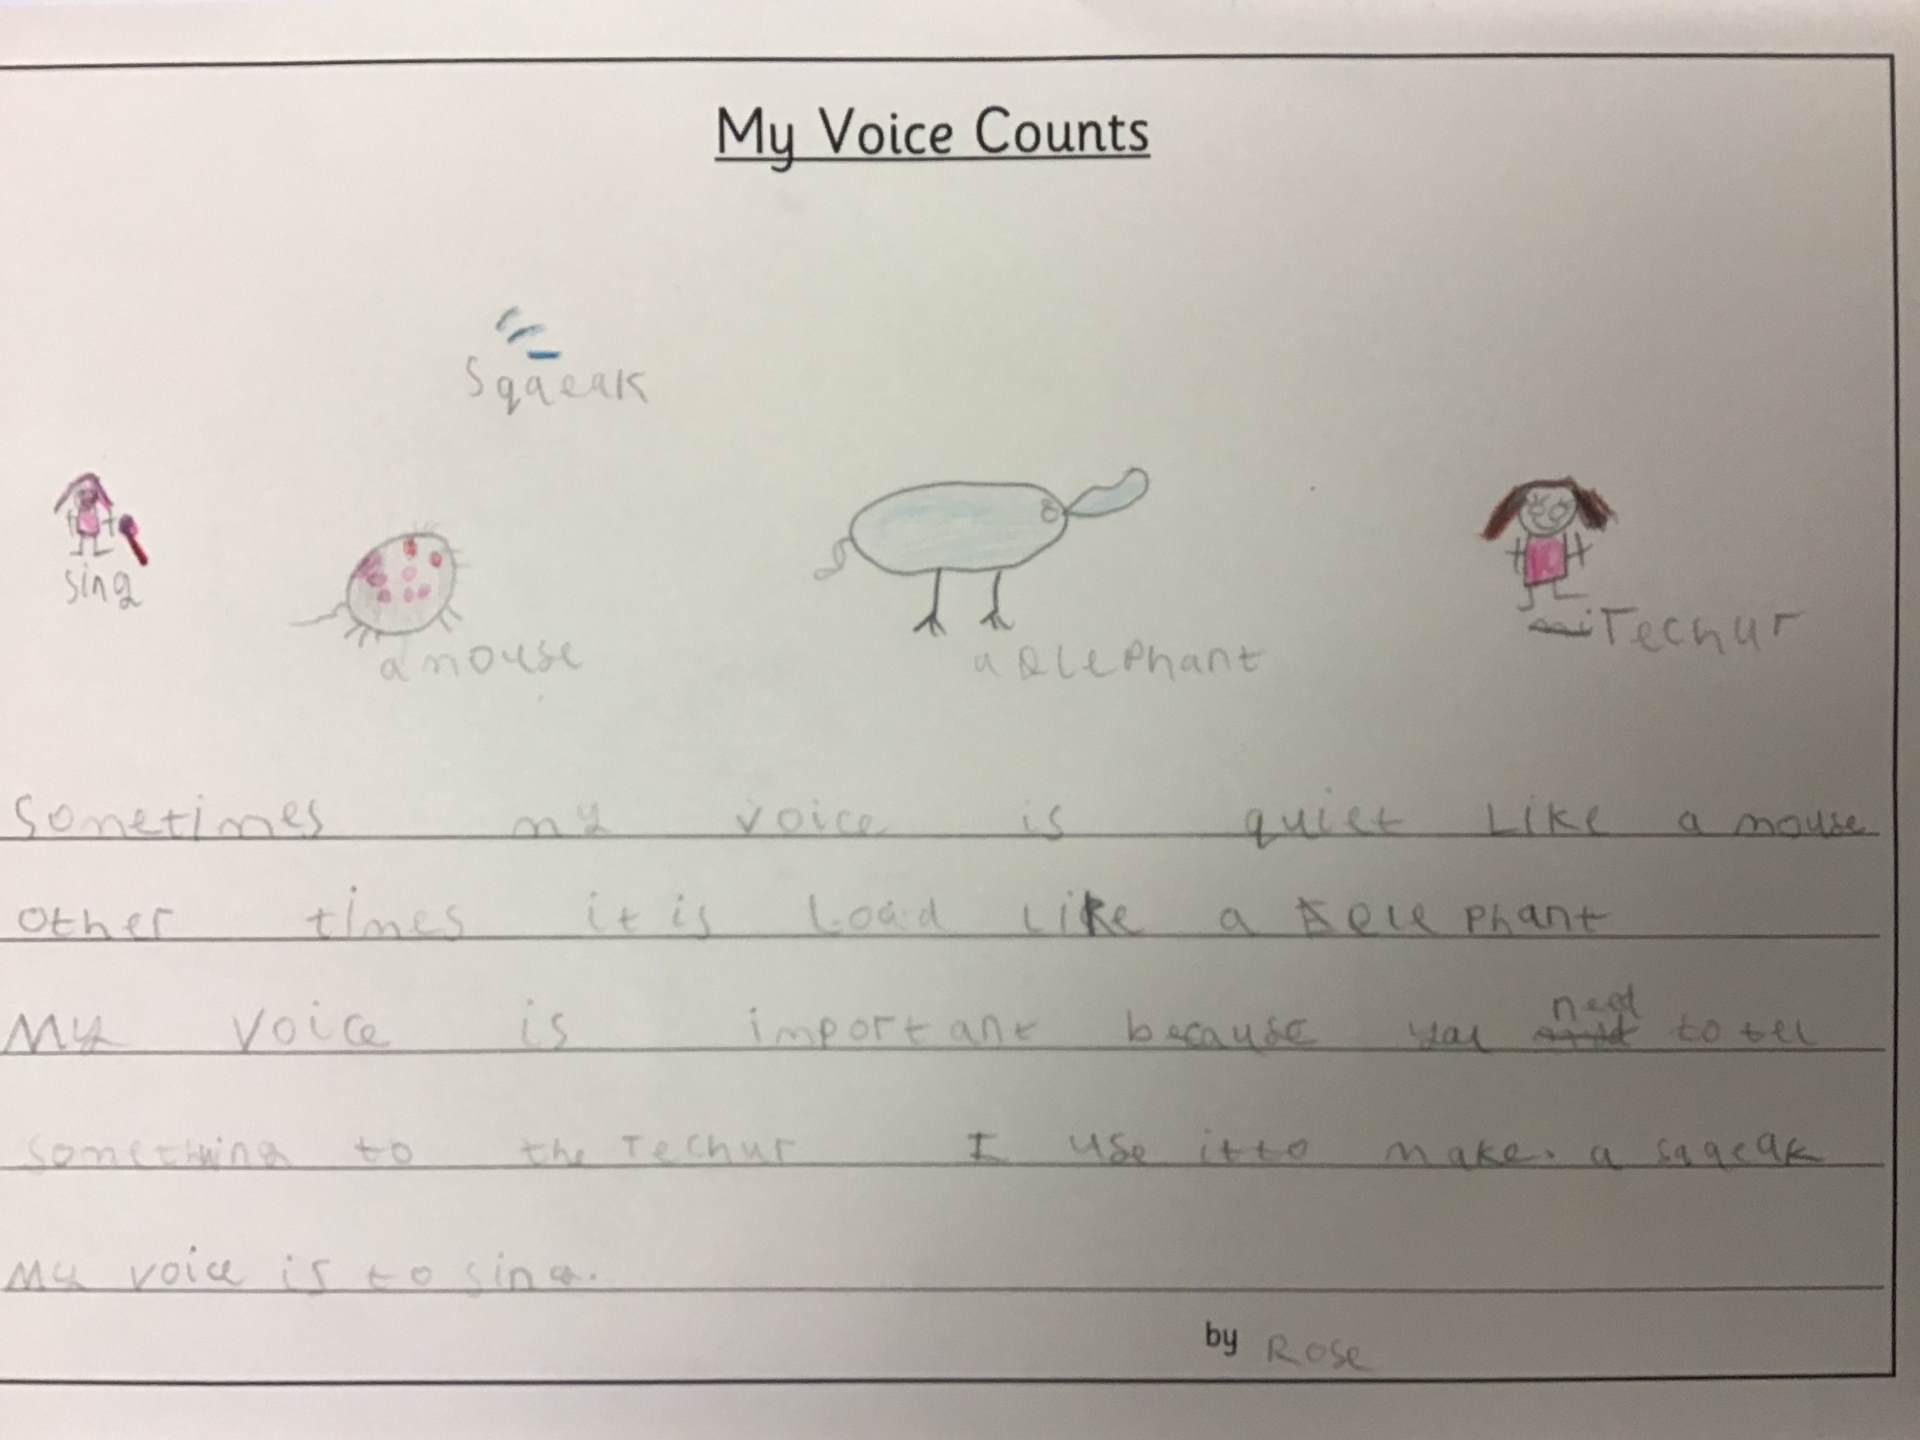 My Voice Counts
Sqaeak
sing
a mouse
a elephant
Techur
Sometimes my voice is quiet like a mouse
other times it is load like a elephant
My voice is important because you need to tell
something to the Techur I use it to make. a sqaeak
My voice is to sing.
by Rose